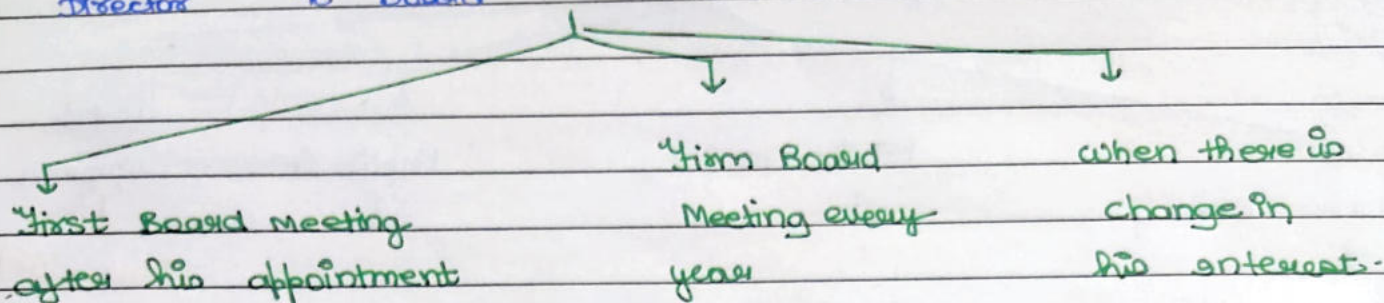 Director
First Board Meeting
after his appointment
Firm Board
Meeting every
year
when there is
change in
his interest.